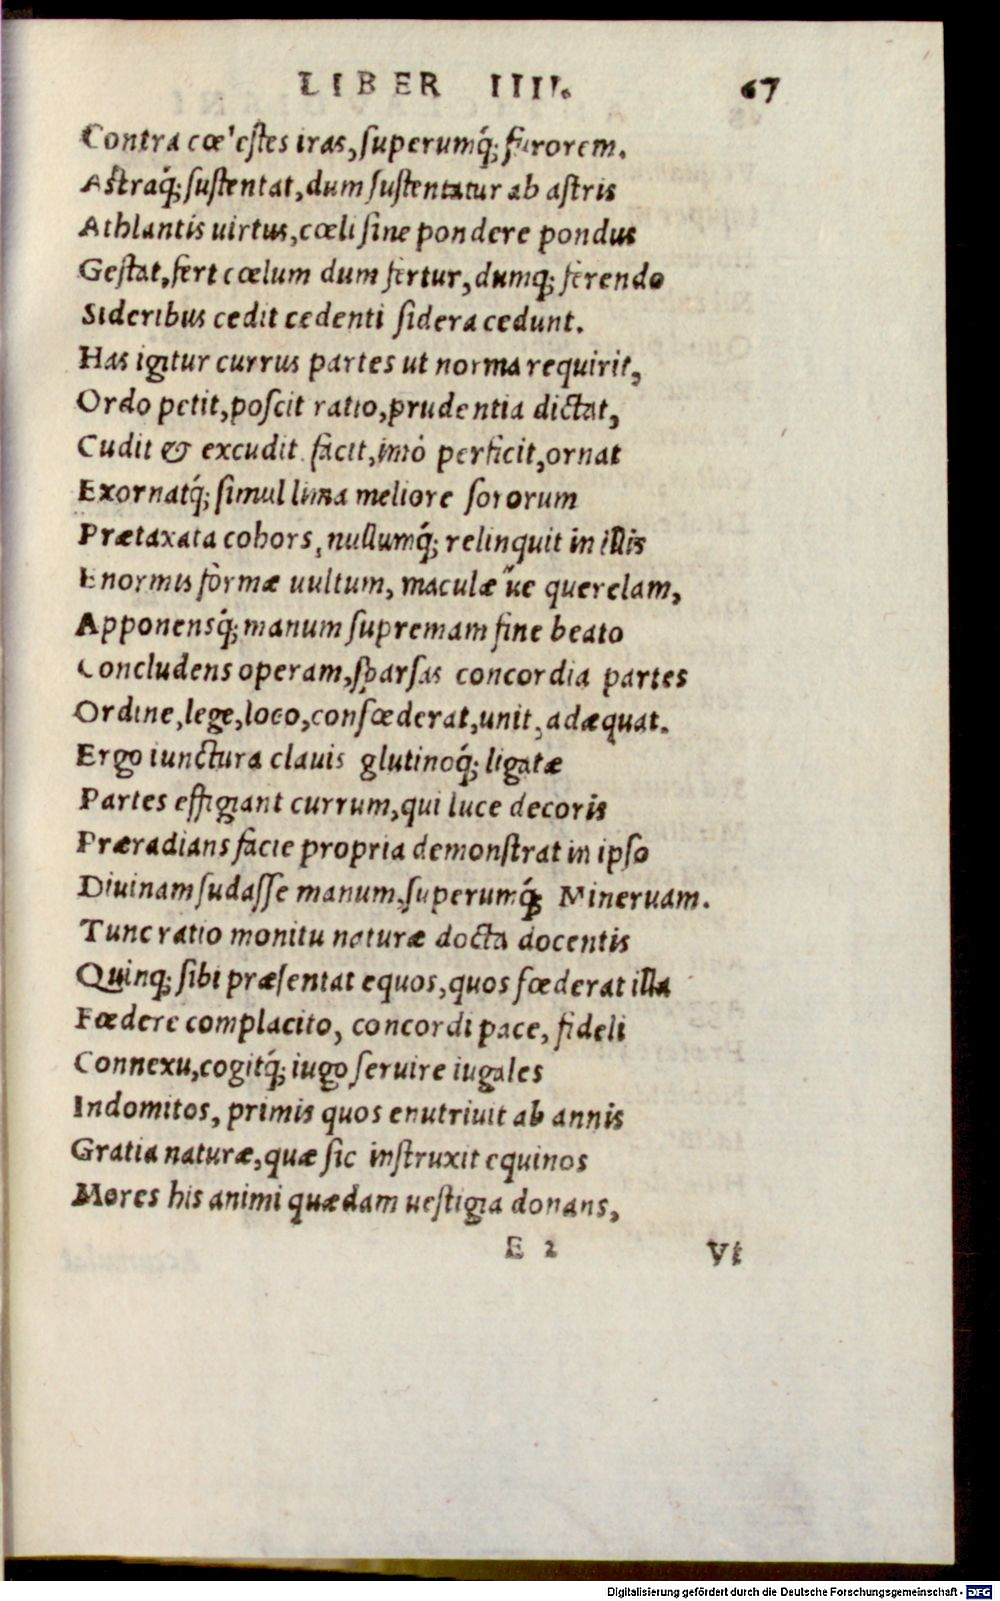 LIBER IIII. 67
Contra cœ'eſtes iras, ſuperumq́; furorem.
Aſtraq́; ſuſtentat, dum ſuſtentatur ab aſtris
Athlantis uirtus, cœli ſine pondere pondus
Geſtat, fert cœlum dum fertur, dumq; ferendo
Sideribus cedit cedenti ſidera cedunt.
Has igitur currus partes ut norma requirit,
Ordo petit, poſcit ratio, prudentia dictat,
Cudit & excudit facit, imò perficit, ornat
Exornatq́; ſimul lima meliore ſororum
Prætaxata cohors, nullumq́; relinquit in illis
Enormis formæ uultum, maculæ ue querelam,
Apponensq́; manum ſupremam fine beato
Concludens operam, ſparſas concordia partes
Ordine, lege, loco, confœderat, unit, adæquat.
Ergo iunctura clauis glutinoq́; ligatæ
Partes effigiant currum, qui luce decoris
Præradians facie propria demonſtrat in ipſo
Diuinam ſudaſſe manum, ſuperumq́; Mineruam.
Tunc ratio monitu naturæ docta docentis
Quinq; ſibi præſentat equos, quos fœderat illa
Fœdere complacito, concordi pace, fideli
Connexu, cogitq́; iugo ſeruire iugales
Indomitos, primis quos enutriuit ab annis
Gratia naturæ, quæ ſic inſtruxit equinos
Mores his animi quædam ueſtigia donans,
E 2 Vt
Digitalisierung gefördert durch die Deutsche Forschungsgemeinschaft - DFG